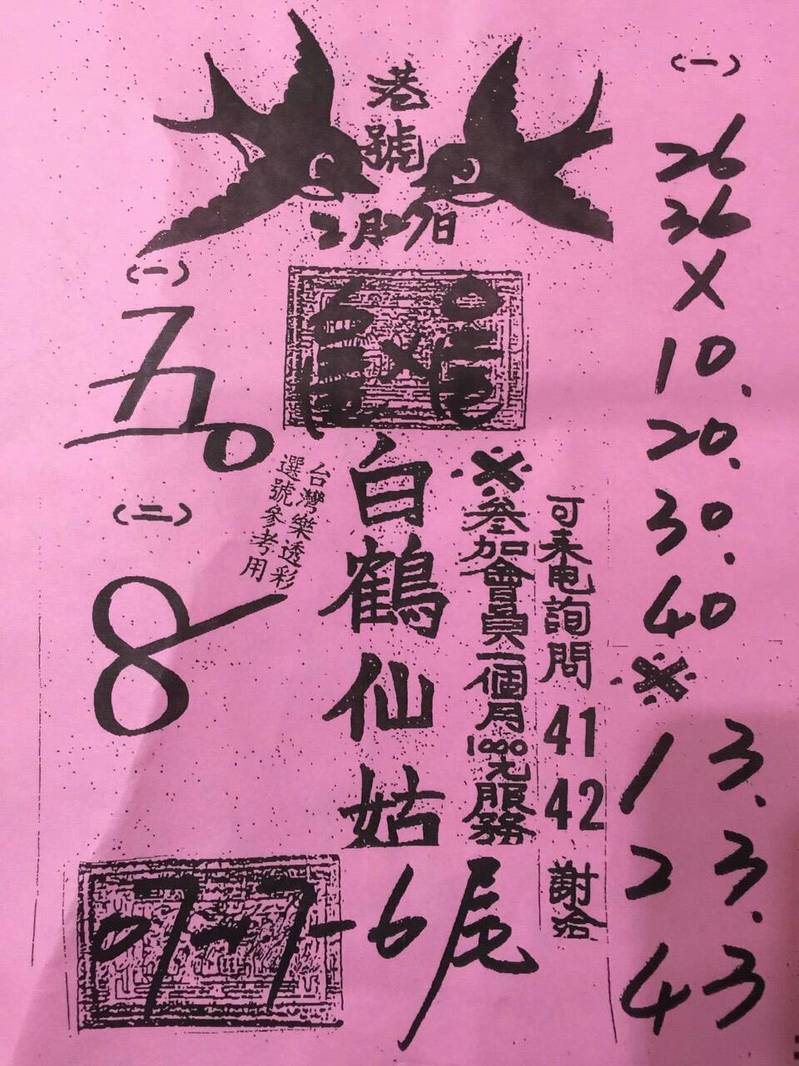 港號
2月27日
(一)
26
36
X
10.
20.
30.
40
※
13.
23.
43
(一)
五0
(二)
8
台灣樂透彩
選號參考用
白鶴仙姑
※參加會員一個月1000元服務
可来电詢問 41 42 謝洽
07-7-6尾